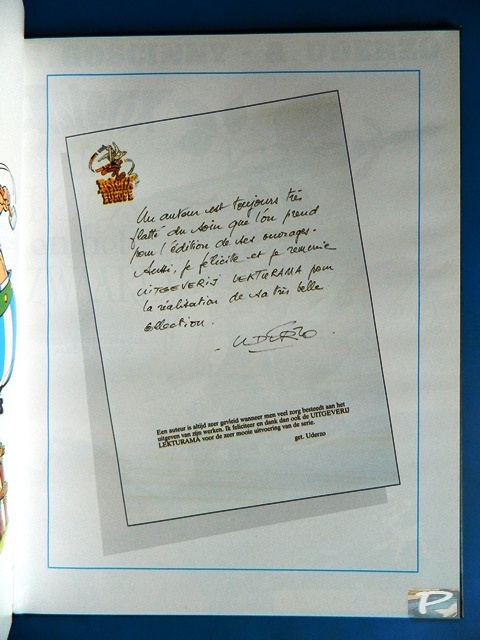 Astérix
EUROPE
Un auteur est toujours très
flatté du soin que l'on prend
pour l'édition de ses ouvrages.
Aussi, je félicite et je remercie
UITGEVERIJ LEKTURAMA pour
la réalisation de sa très belle
collection.
- UDERZO.
Een auteur is altijd zeer gevleid wanneer men veel zorg besteedt aan het
uitgeven van zijn werken. Ik feliciteer en dank dan ook de UITGEVERIJ
LEKTURAMA voor de zeer mooie uitvoering van de serie.
get. Uderzo
P